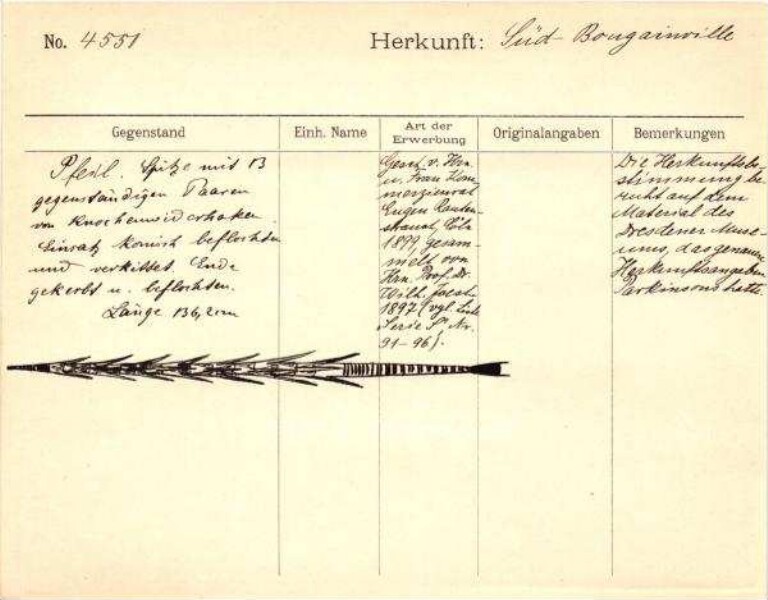 No. 4551
Herkunft: Süd-Bougainville
Gegenstand
Einh. Name
Art der
Erwerbung
Originalangaben
Bemerkungen
Pfeil. Spitze mit 13
gegenständigen Paaren
von Knochenwiderhaken.
Einsatz konisch beflochten
und verkittet. Ende
gekerbt u. beflochten.
Länge 136,2cm
Gesch. v. Hrn.
u. Frau Kom-
merzienrat
Eugen Rauten-
strauch, Cöln
1899, gesam-
melt von
Hrn. Prof. Dr.
Wilh. Joest
1897 (vgl.
Serie Nr.
91-96).
Die Herkunftsbe-
stimmung be-
ruht auf dem
Material des
Dresdener Muse-
ums, das genaue
Herkunftsangaben
Parkinsons hatte.